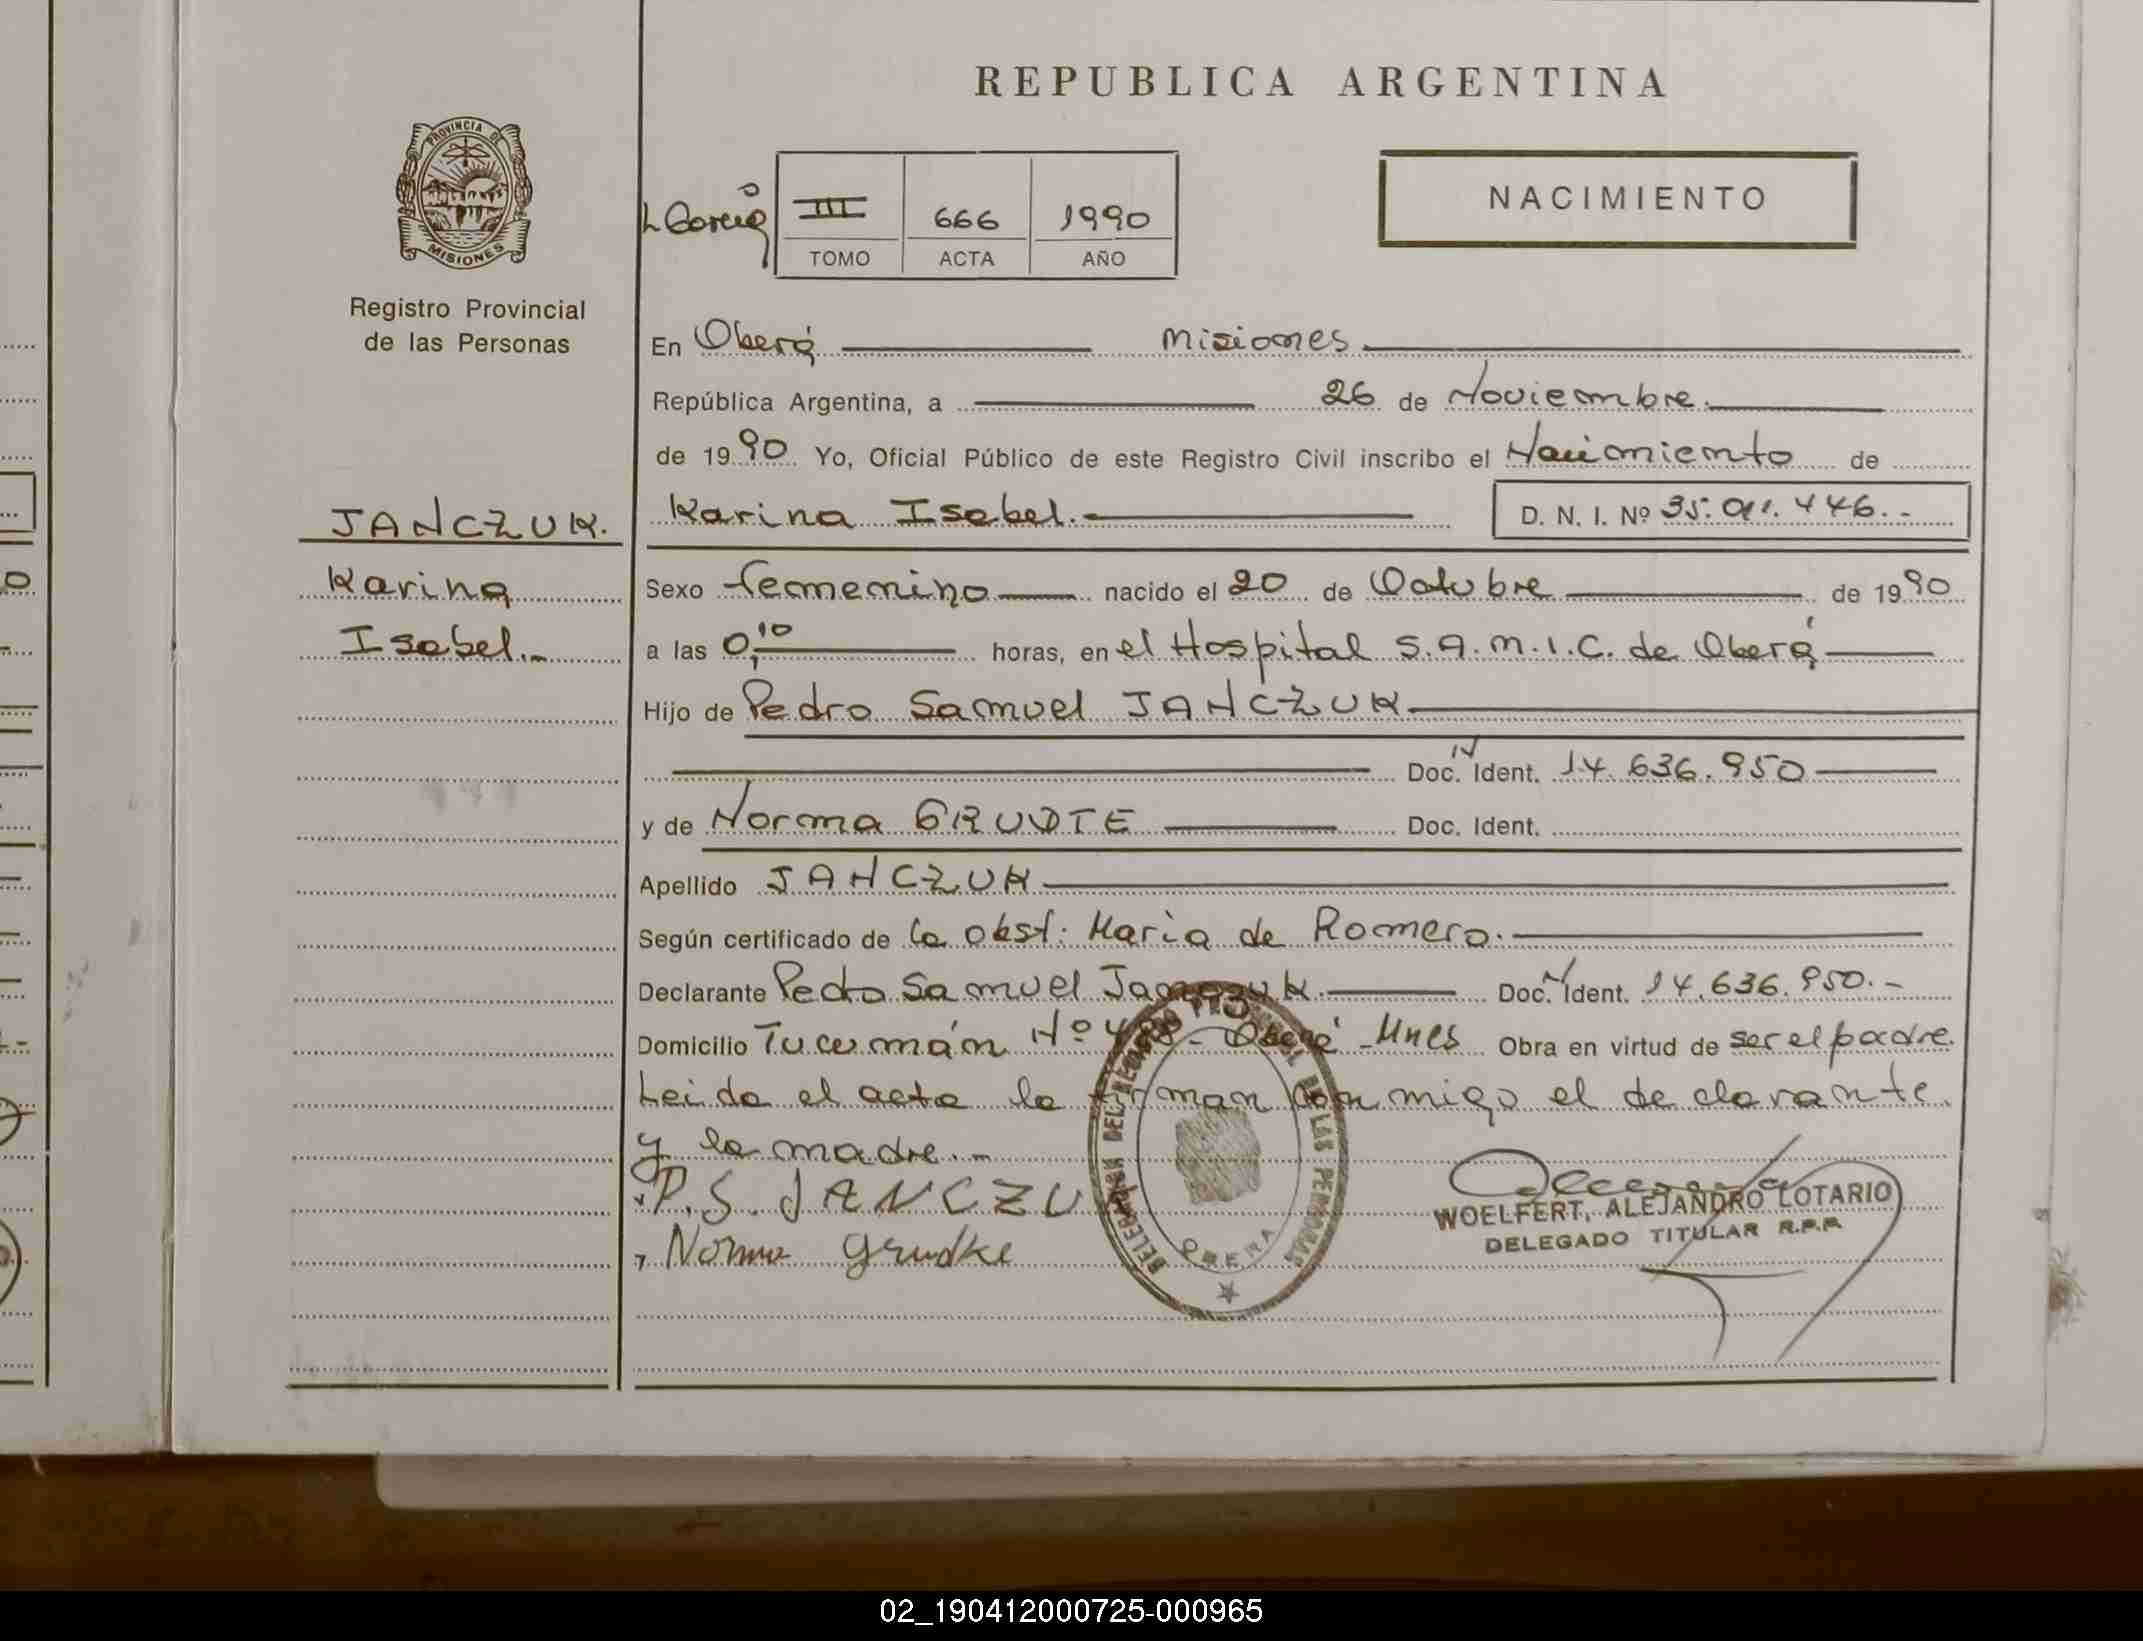 REPUBLICA ARGENTINA
PROVINCIA DE
MISIONES
Registro Provincial
de las Personas
III 666 1990
TOMO ACTA AÑO
NACIMIENTO
En Oberá Misiones
República Argentina, a 26 de Noviembre.
de 1990 Yo, Oficial Público de este Registro Civil inscribo el Nacimiento de
JANCZUK.
Karina Isabel. D. N. I. Nº
Karina
Isabel.-
Sexo femenino nacido el 20 de Octubre de 1990
a las 0,10 horas, en el Hospital S.A.M.I.C. de Oberá
Hijo de Pedro Samuel JANCZUK
Doc. Ident. 14.636.950
y de Norma GRUDTE Doc. Ident.
Apellido JANCZUK
Según certificado de la obst: Maria de Romero.
Declarante Pedro Samuel Janczuk. Doc. Ident. 14.636.950.-
Domicilio Tucumán Nº - Oberá - Mnes Obra en virtud de ser el padre.
Leida el acta la firman conmigo el declarante
y la madre.-
P.S. JANCZU
Norma Grudke
WOELFERT, ALEJANDRO LOTARIO
DELEGADO TITULAR R.P.P.
DELEGACION DEL REGISTRO PROVINCIAL DE LAS PERSONAS
OBERA
02_190412000725-000965